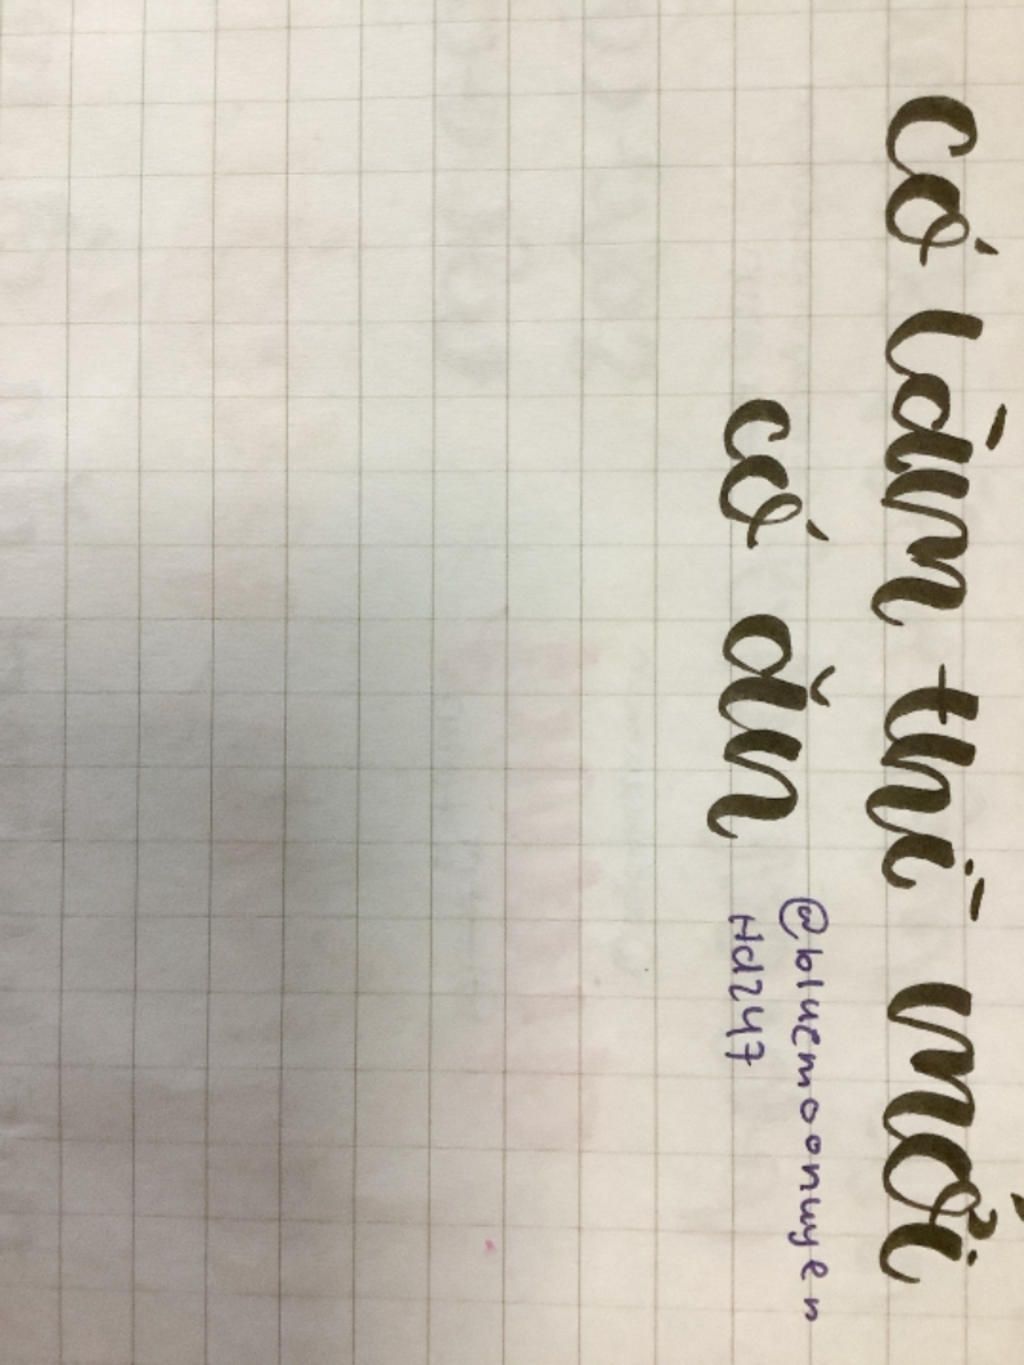 có làm thì mới
có ăn
@bluemoonnuyen
Hd247